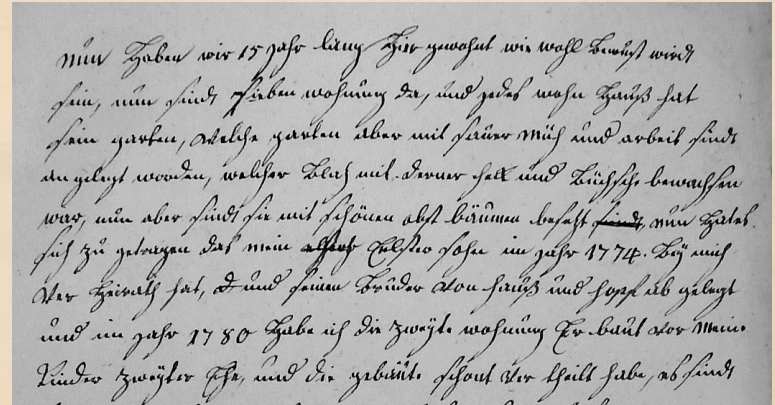 nun Haben wir 15 Jahr lang Hier gewohnt wie wohl Bewust wird
sein, nun sind sieben wohnung da, und jedes wohn Hauß hat
sein garten, Welche garten aber mit sauer müh und arbeit sind
an gelegt worden, welcher Blatz mit Derner heck und Büsche bewachsen
war, nun aber sind sie mit schönen obst bäumen besetzt sind, nun Hat es
sich zu getragen das mein Elster sohn im Jahr 1774. Bey mich
Ver Heirath hat, und seinen Bruder von Hauß und hoff ab gelegt
und im Jahr 1780 Habe ich die zweyte wohnung Er baut vor mein
Kinder zweyter Ehe, und die gebäute schont Ver theilt habe, es sind